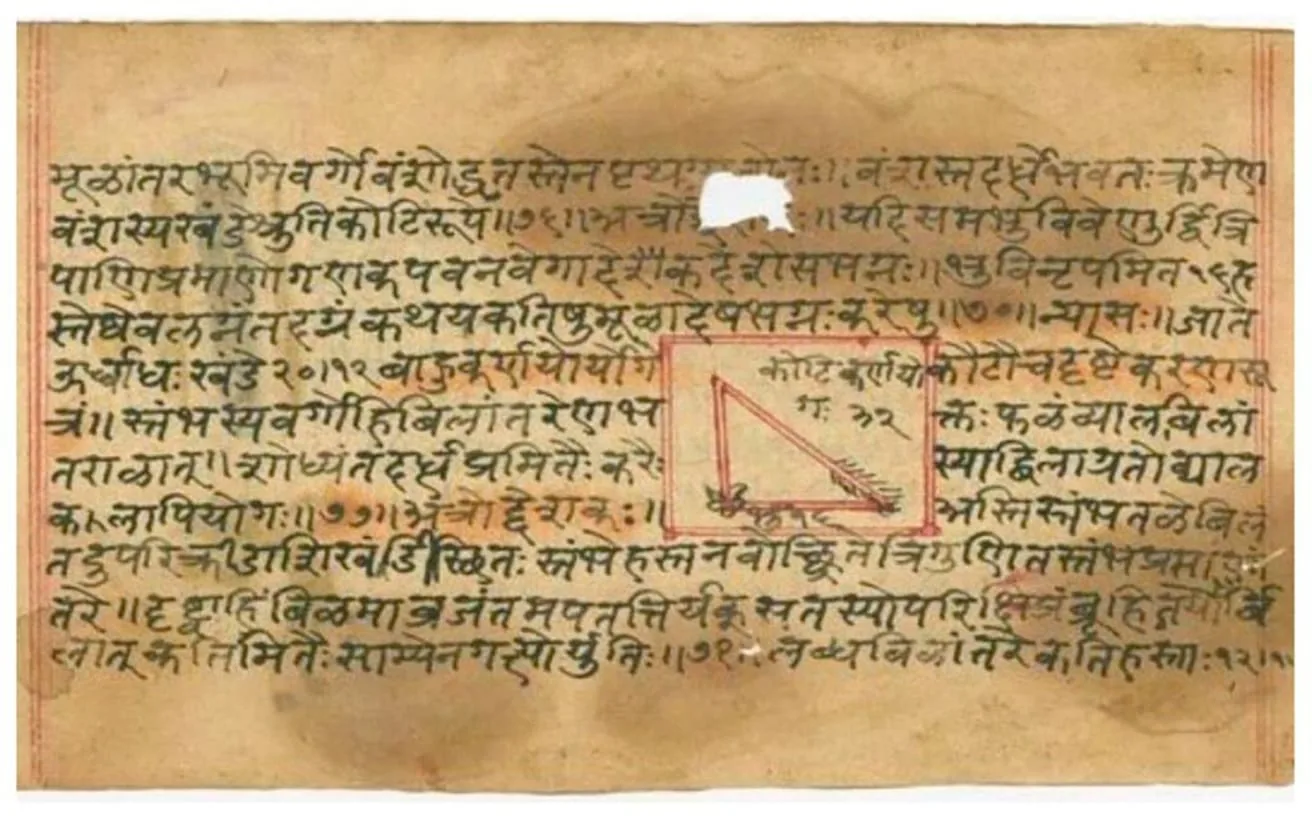 मूळांतरभूमिवर्गोवंशोद्धृतस्तेनपृथग :॥वंशस्तदर्धेभवतःक्रमेण
वंशस्यखंडेश्रुतिकोटिरूपे॥७६॥अत्रो :॥यदिसमभुविवेणुर्द्वित्रि
पाणिप्रमाणोगणकपवनवेगादेशैकदेशेसभग्नः॥भुविनृपमित१६ह
स्तेष्वेवलग्नंतदग्रंकथयकतिषुमूळादेषभग्नःकरेषु॥७०॥न्यासः॥जाते
ऊर्ध्वाधःखंडे२०।१२बाहुकर्णयोर्योगे कोटिकर्णयो कोटौचदृष्टेकरणसू
त्रं॥स्तंभस्यवर्गोहिबिलांतरेणभ गः ३२ क्तःफळंव्यालबिलां
तराळात्॥शोध्यंतदर्धप्रमितैःकरैः स्याद्बिलाग्रतोव्याल
कालापियोगः॥७७॥अत्रोद्देशकः॥ अस्तिस्तंभतळेबिलं
तदुपरिक्रीडाशिखंडीस्थितःस्तंभेहस्तनवोच्छ्रितेत्रिगुणितस्तंभप्रमाणां
तरे॥दृष्ट्वाहिंबिळमाव्रजंतमपतत्तिर्यक्सतस्योपरि।क्षिप्रंब्रूहितयोर्बि
लात्कतिमितैःसाम्येनगत्योर्युतिः॥७१॥लब्धबिळांतरेकतिहस्ताः१२।